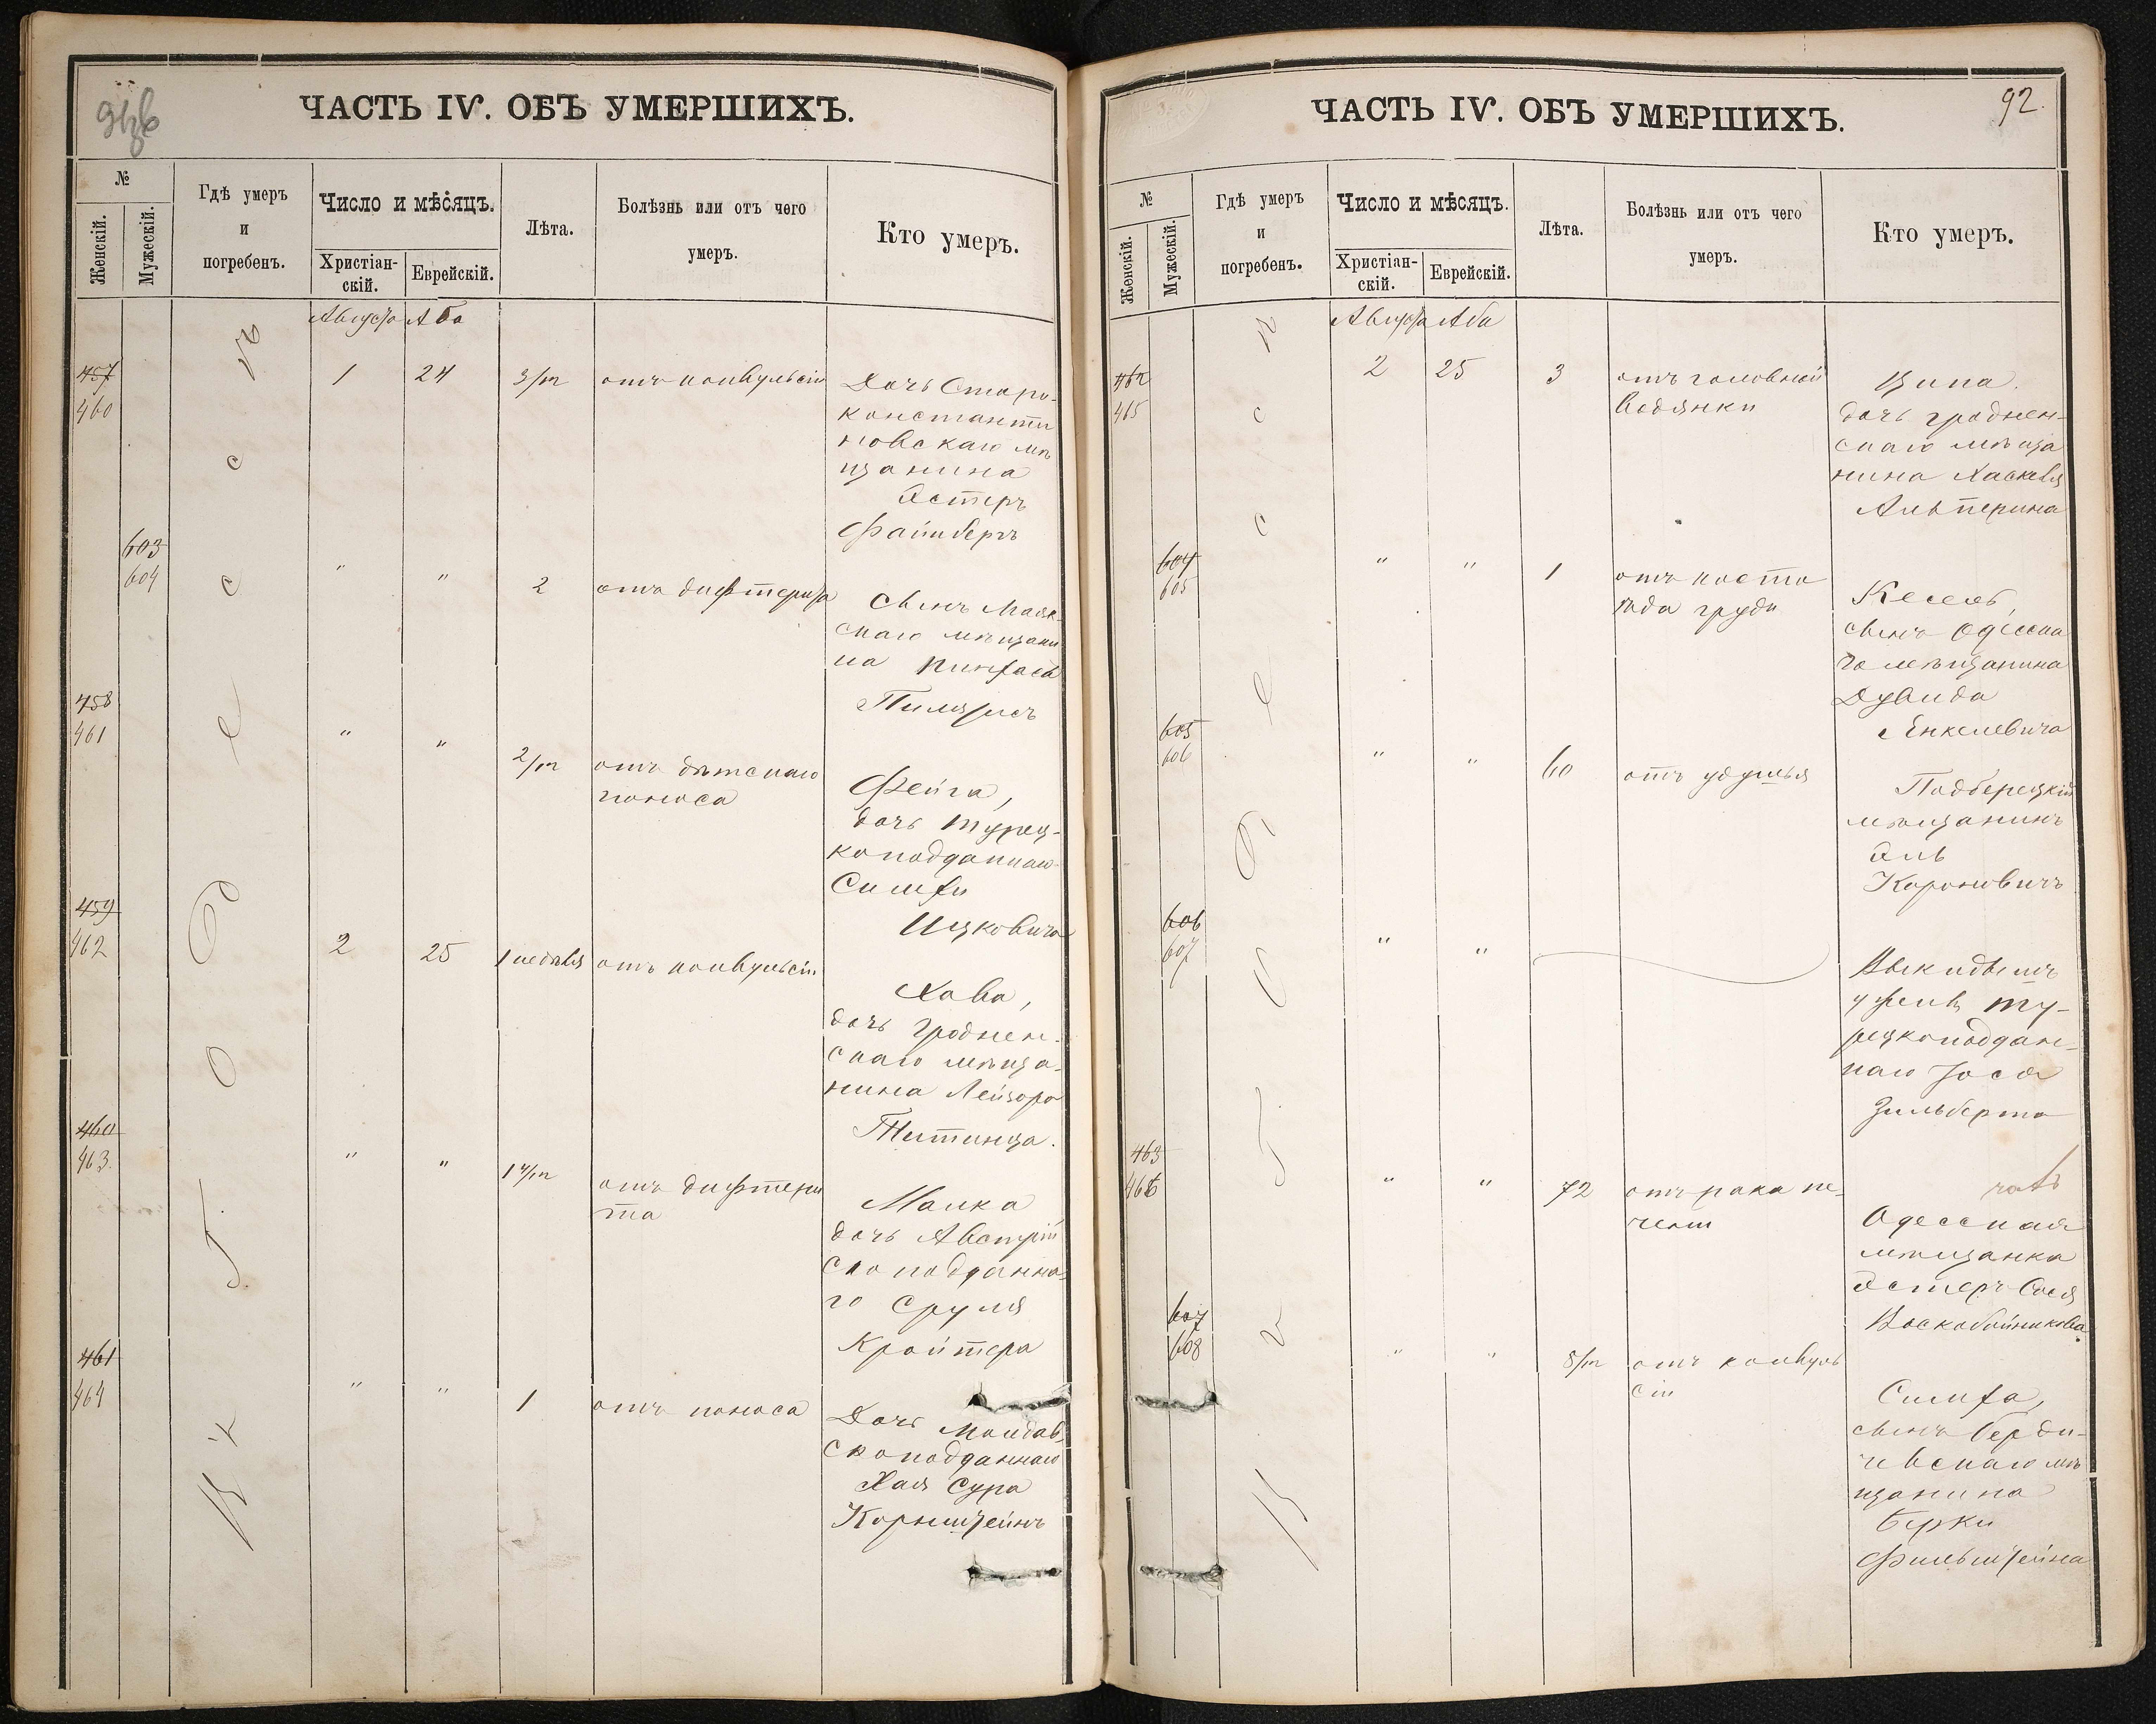 ЧАСТЬ IV. ОБЪ УМЕРШИХЪ.
№
Женскій.
Мужескій.
Гдѣ умеръ
и
погребенъ.
Число и мѣсяцъ.
Христіан-
скій.
Еврейскій.
Лѣта.
Болѣзнь или отъ чего
умеръ.
Кто умеръ.
Въ г. Одессѣ
Августа Аба
457
460
1 24 3/м отъ конвульсіи
Дочь Старо-
константи
новскаго мѣ
щанина
Эстеръ
Файнбергъ
603
604
" " 2 отъ дифтерита
Сынъ Маяк-
скаго мѣщани
на Пинхаса
458
461
" " 2/м отъ дѣтскаго
поноса
Фейга,
дочь турец-
коподданнаго
Симхи
Ицковича
459
462
2 25 1 недѣля отъ конвульсіи
Хава,
дочь Гроднен-
скаго мѣща-
нина Лейзора
460
463
" " отъ дифтери
та
Малка
дочь Австрій
скоподданна-
го Сруля
Кройтера
461
464
" " 1 отъ поноса
Дочь Молдав-
скоподданнаго
Хая Сура
Корнштейнъ
ЧАСТЬ IV. ОБЪ УМЕРШИХЪ.
92.
№
Женскій.
Мужескій.
Гдѣ умеръ
и
погребенъ.
Число и мѣсяцъ.
Христіан-
скій.
Еврейскій.
Лѣта.
Болѣзнь или отъ чего
умеръ.
Кто умеръ.
Въ г. Одессѣ
Августа Аба
462
465
2 25 3 отъ головной
водянки
Ципа.
дочь гроднен-
скаго мѣща
нина Хаскеля
Альперина
604
605
" " 1 отъ
груди
Кесель,
сынъ Одесска
го мѣщанина
Дувида
Енкелевича
605
606
" " 60 отъ удушья
Подберецкій
мѣщанинъ
Эль
606
607
" "
Выкидышъ
у жены ту-
рецкоподдан-
наго Іося
Зильберта
463
466
" " 72 отъ рака пе-
чени
Одесская
мѣщанка
Эстеръ Сося
Воскобойникова
607
608
" " 8/м отъ конвуль
сіи
Симха,
сынъ Берди-
чевскаго мѣ
щанина
Берки
Фильштейна